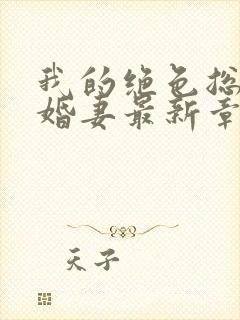 我的绝色总
婚妻最新章
天子